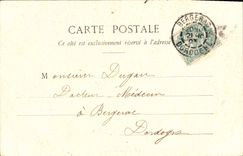 CARTE POSTALE
Ce côté est exclusivement réservé à l'adresse
BERGERAC
Monsieur Dugan
Docteur-Médecin
à Bergerac
Dordogne